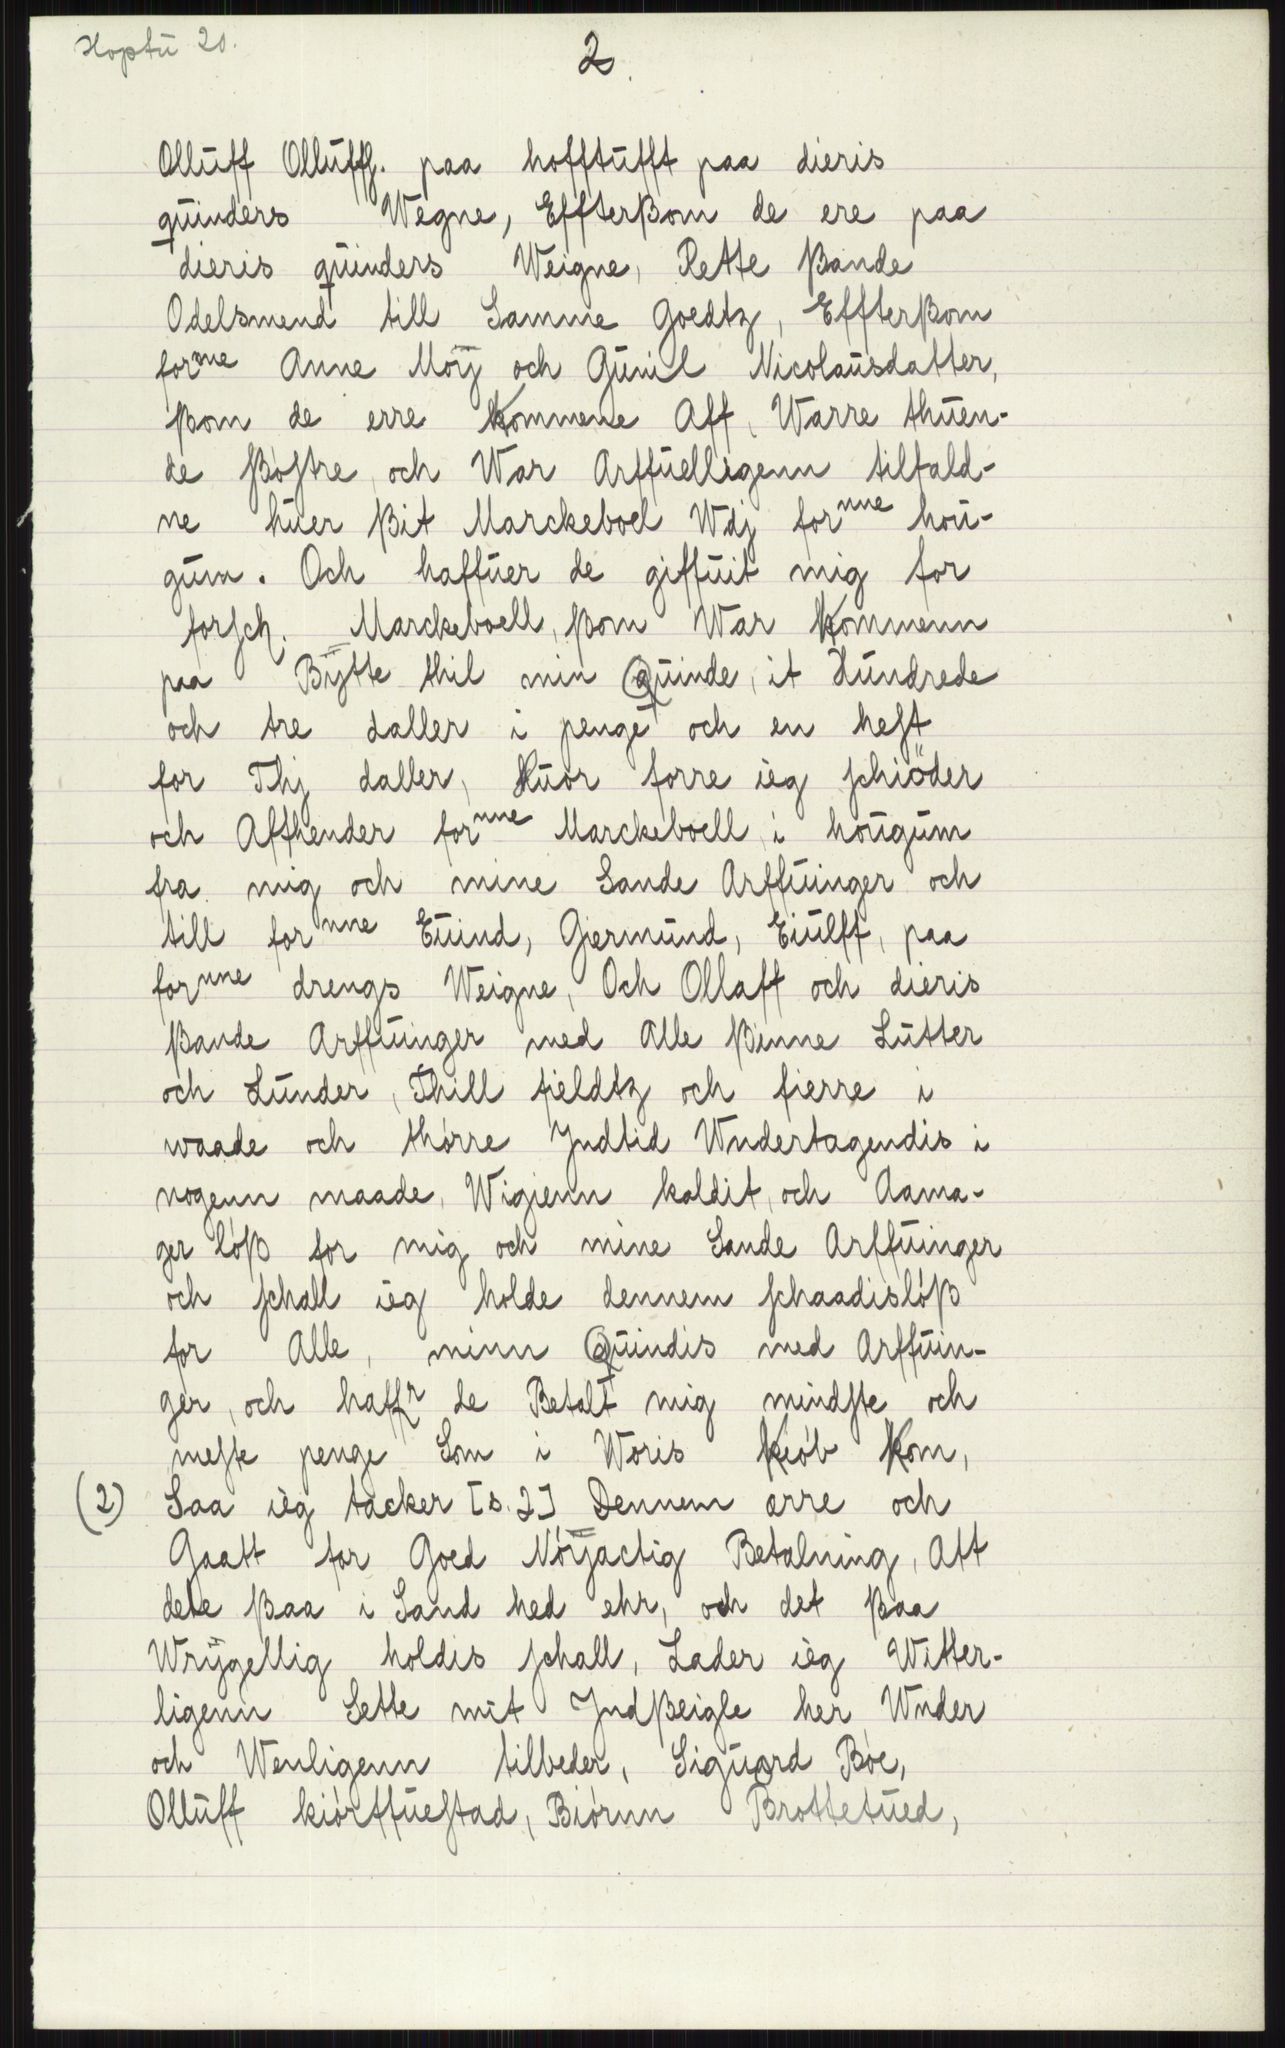 Hoptu 20.
2.
Olluff Olluffs. paa hofftufft paa dieris
quinders Wegne, Effterßom de ere paa
dieris quinders Weigne, Rette ßande
Odelsmend till Samme Goedtz, Effterßom
forⁿⁿᵉ Anne Moÿ och Gunil Nicolausdatter,
ßom de erre Kommene Aff, Warre thuen-
de ßøstre, och War Arffuelligenn tilfald-
ne huer ßit Marckeboel Wdj forⁿⁿᵉ hou-
gum. Och haffuer de giffuit mig for
forsch. Marckeboell, ßom War Kommenn
paa Bÿtte thil min Quinde, it Hundrede
och tre daller i penge och en hest
for Thj daller, Huor forre ieg schiöder
och Affhender forⁿⁿᵉ Marckeboell i hougum
fra mig och mine Sande Arffuinger och
till forⁿⁿᵉ Euind, Giermund, Eiulff, paa
forⁿⁿᵉ drengs Weigne, Och Ollaff och dieris
ßande Arffuinger med Alle ßinne Lutter
och Lunder, Thill fieldtz och fierre i
waade och thørre Jndtid Wndertagendis i
nogenn maade, Wigienn kaldit, och Aama-
ger løß for mig och mine Sande Arffuinger
och schall ieg holde dennem schaadisløß
for Alle, minn Quindis med Arffuin-
ger, och haffr de Betalt mig mindste och
meste penge Som i Woris Kiøb Kom,
(2) Saa ieg tacker [s. 2] Dennem ærre och
Gaatt for Goed Nøÿactig Betalning, Att
dete ßaa i Sand hed ehr, och det ßaa
Wrÿgellig holdis schall, Lader ieg Witter-
ligenn Sette mit Jndßeigle her Wnder
och Wenligenn tilbeder, Siguord Bøe,
Olluff kiørffuestad, Biørnn Brottetued,